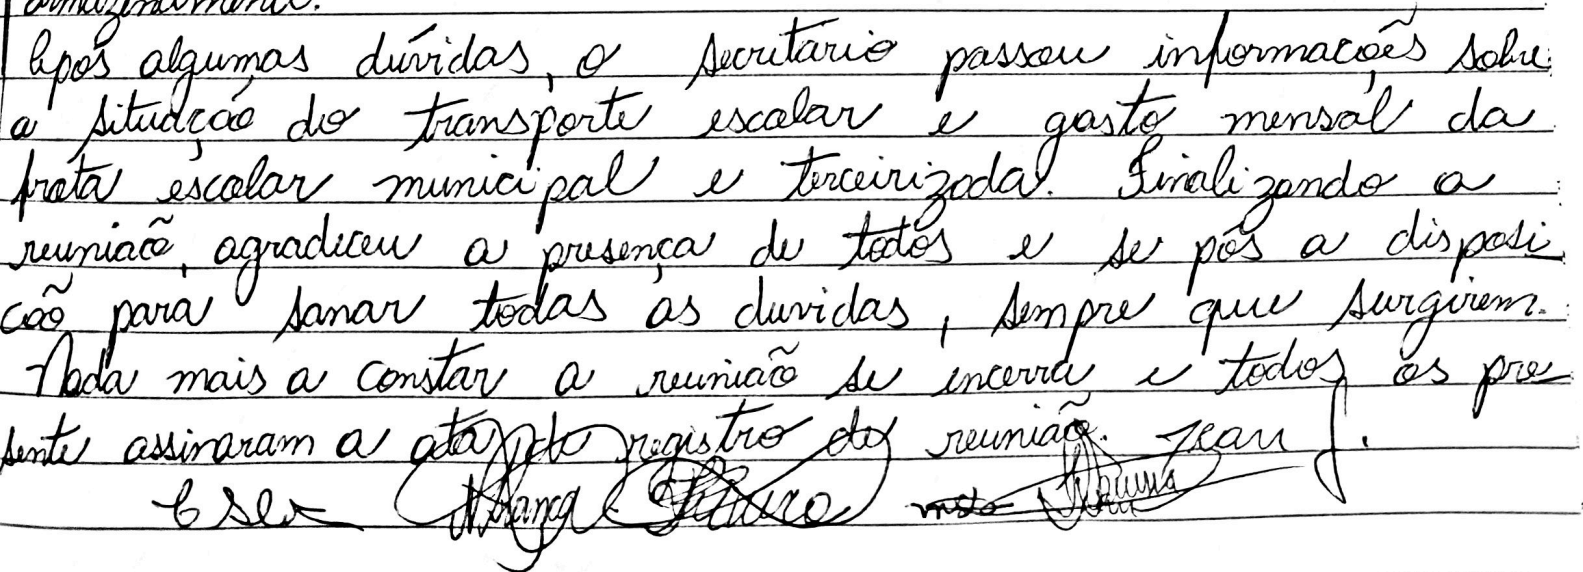 armazenamento.
Após algumas dúvidas, o secretário passou informações sobre
a situação do transporte escolar e gasto mensal da
frota escolar municipal e terceirizada. Finalizando a
reunião, agradeceu a presença de todos e se pôs a disposi
ção para sanar todas as duvidas, sempre que surgirem.
Nada mais a constar a reunião se encerra e todos os pre
sente assinaram a ata do registro de reunião. Jean